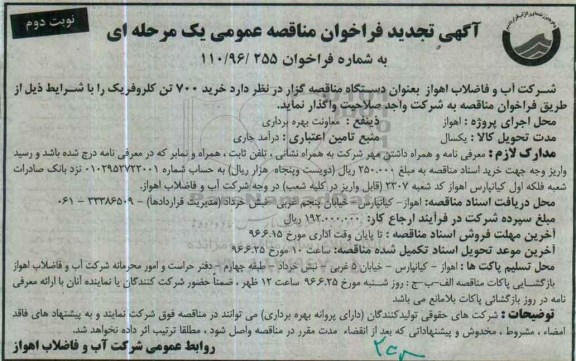 نوبت دوم
آگهی تجدید فراخوان مناقصه عمومی یک مرحله ای
به شماره فراخوان ۱۱۰/۹۶/۲۵۵
شرکت آب و فاضلاب اهواز بعنوان دستگاه مناقصه گزار در نظر دارد خرید ۷۰۰ تن کلروفریک را با شرایط ذیل از
طریق فراخوان مناقصه به شرکت واجد صلاحیت واگذار نماید.
محل اجرای پروژه : اهواز ذینفع : معاونت بهره برداری
مدت تحویل کالا : یکسال منبع تامین اعتباری : درآمد جاری
مدارک لازم : معرفی نامه و همراه داشتن مهر شرکت به همراه نشانی ، تلفن ثابت ، همراه و نمابر که در معرفی نامه درج شده باشد و رسید
واریز وجه جهت خرید اسناد مناقصه به مبلغ ۲۵۰.۰۰۰ ریال (دویست وپنجاه هزار ریال) به حساب شماره ۰۱۰۲۹۵۲۷۲۲۰۰۱ نزد بانک صادرات
شعبه فلکه اول کیانپارس اهواز کد شعبه ۲۳۰۷ (قابل واریز در کلیه شعب) در وجه شرکت آب و فاضلاب اهواز.
محل دریافت اسناد مناقصه: اهواز- کیانپارس- خیابان پنجم غربی -نبش خرداد (مدیریت قراردادها) - ۳۳۳۸۶۵۰۹ - ۰۶۱
مبلغ سپرده شرکت در فرآیند ارجاع کار: ۱۹۲.۰۰۰.۰۰۰ ریال
آخرین مهلت فروش اسناد مناقصه : تا پایان وقت اداری مورخ ۹۶.۶.۱۵
آخرین موعد تحویل اسناد تکمیل شده مناقصه: ساعت ۱۰ مورخ ۹۶.۶.۲۵
محل تسلیم پاکت ها : اهواز - کیانپارس - خیابان ۵ غربی - نبش خرداد - طبقه چهارم - دفتر حراست و امور محرمانه شرکت آب و فاضلاب اهواز
بازگشایی پاکات مناقصه الف-ب-ج : روز شنبه مورخ ۹۶.۶.۲۵ ساعت ۱۲ ظهر ، ضمناً حضور شرکت کنندگان یا نماینده آنان با ارائه معرفی
نامه در روز بازگشائی پاکات بلامانع می باشد
توضیحات : شرکت های حقوقی تولیدکنندگان (دارای پروانه بهره برداری) می توانند در مناقصه فوق شرکت نمایند و به پیشنهاد های فاقد
امضاء ، مشروط ، مخدوش و پیشنهاداتی که بعد از انقضاء مدت مقرر در مناقصه واصل شود ، مطلقا ترتیب اثر داده نخواهد شد.
روابط عمومی شرکت آب و فاضلاب اهواز